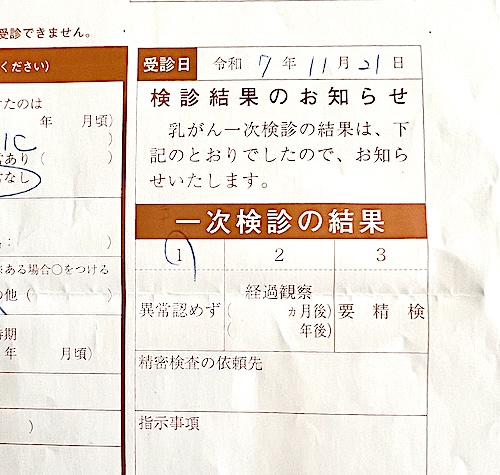 受診できません。
ください）
けたのは
年　月頃）
IC　）
常あり（　）
常なし
：　）
ある場合〇をつける
の他（　）
時期
年　月頃）
）
受診日　令和7年11月21日
検診結果のお知らせ
乳がん一次検診の結果は、下
記のとおりでしたので、お知ら
せいたします。
一次検診の結果
1　2　3
異常認めず　経過観察（　ヵ月後）（　年後）　要精検
精密検査の依頼先
指示事項